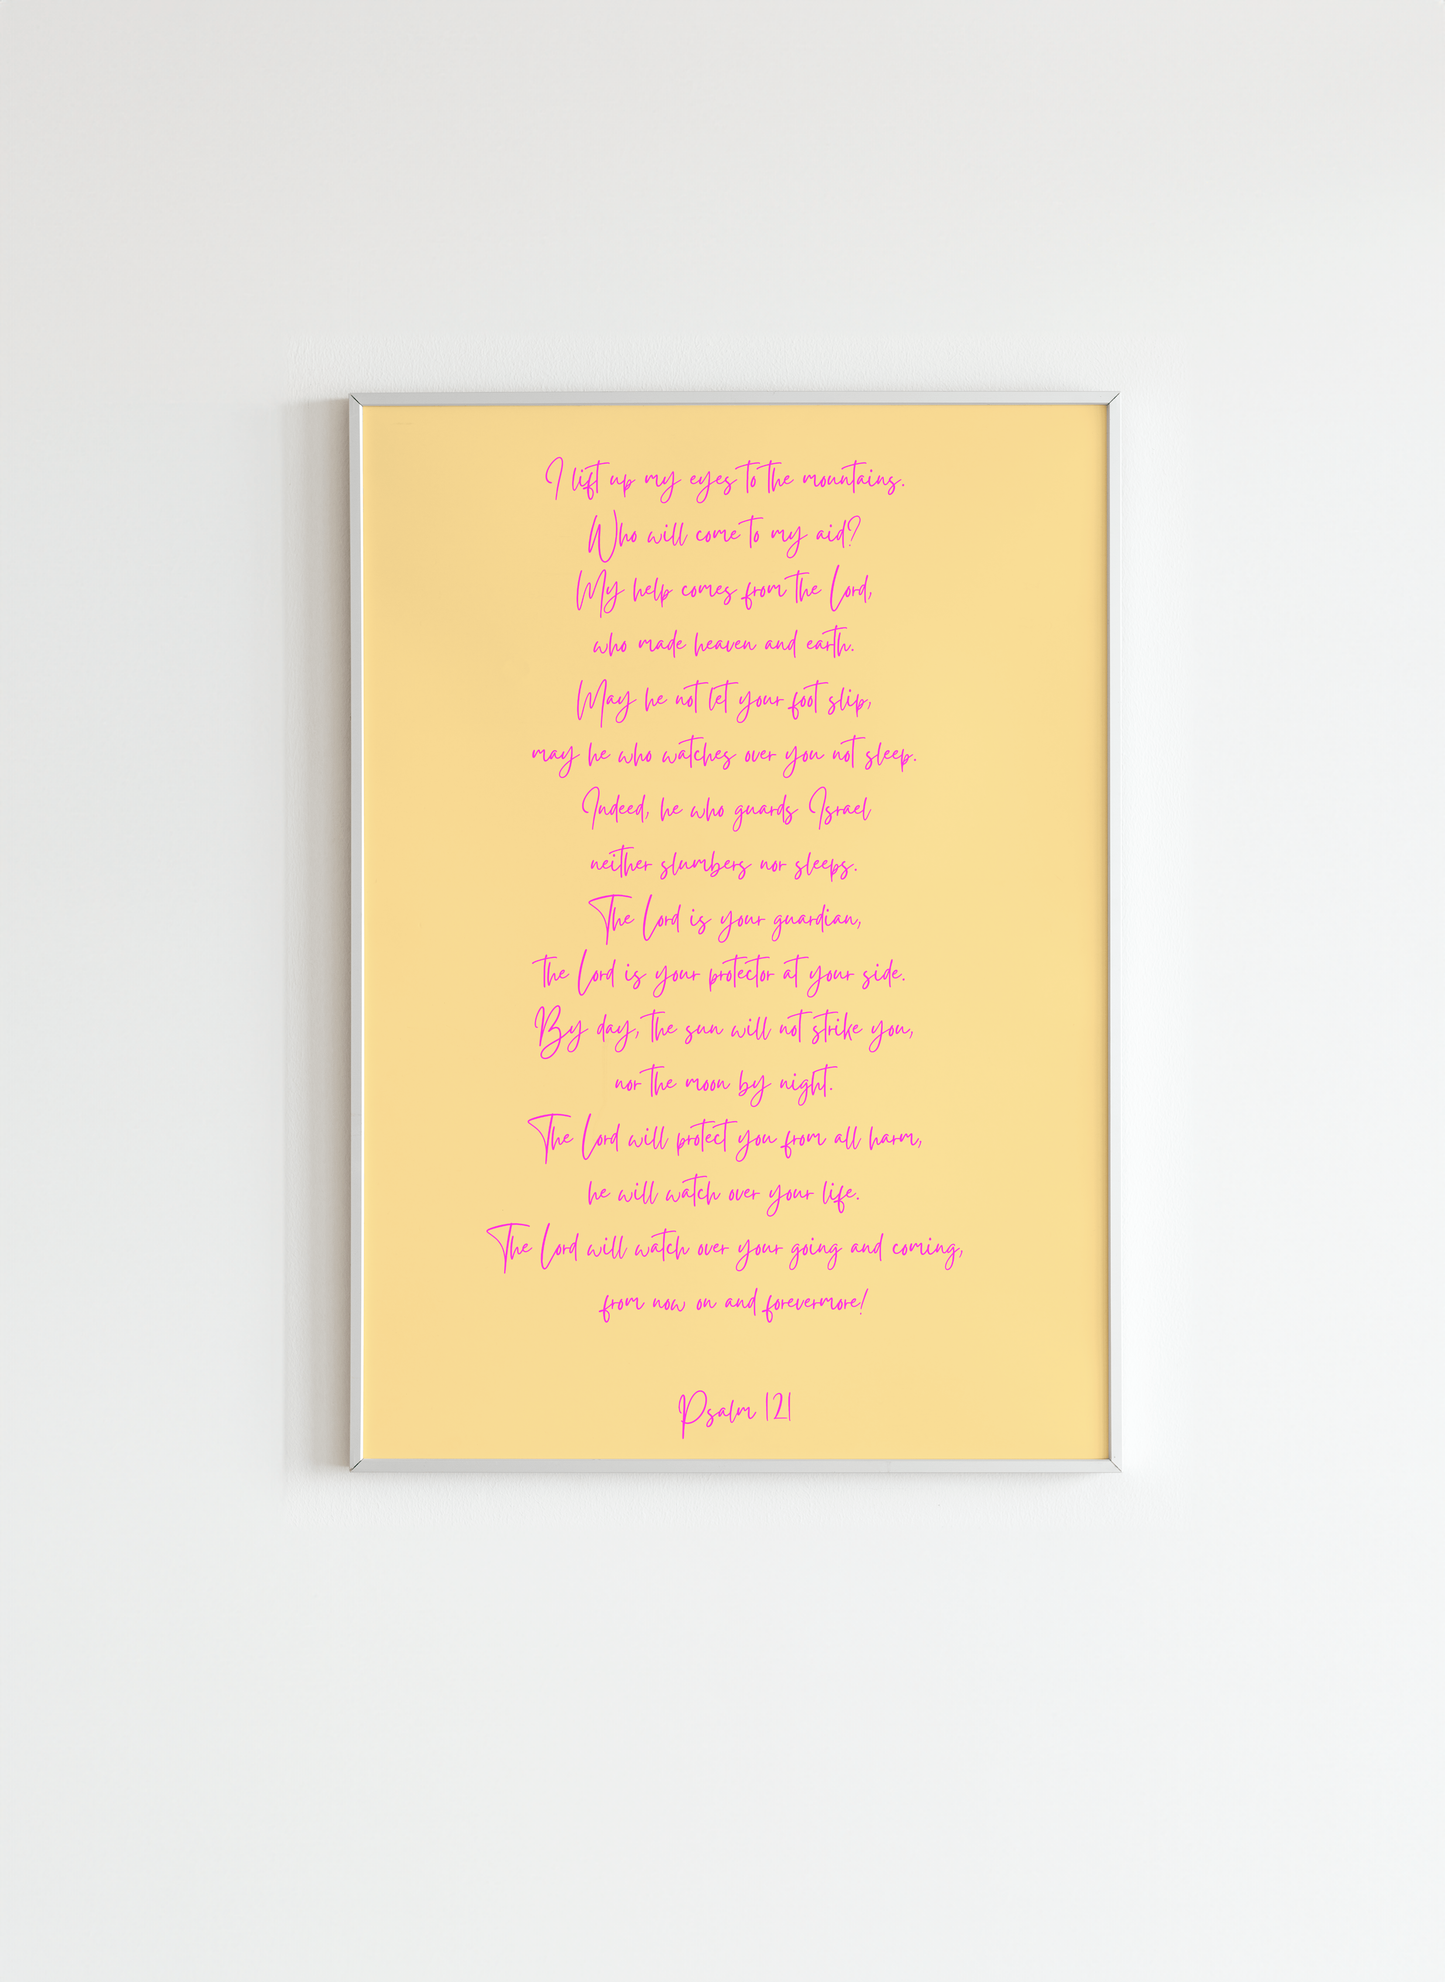 I lift up my eyes to the mountains.
Who will come to my aid?
My help comes from the Lord,
who made heaven and earth.
May he not let your foot slip,
may he who watches over you not sleep.
Indeed, he who guards Israel
neither slumbers nor sleeps.
The Lord is your guardian,
the Lord is your protector at your side.
By day, the sun will not strike you,
nor the moon by night.
The Lord will protect you from all harm,
he will watch over your life.
The Lord will watch over your going and coming,
from now on and forevermore!
Psalm 121